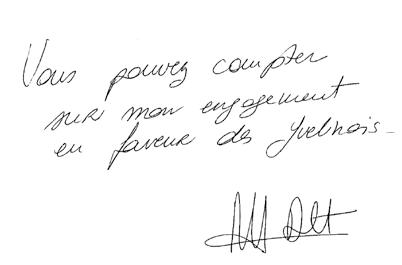 Vous pouvez compter
sur mon engagement
en faveur des Yvelinois_